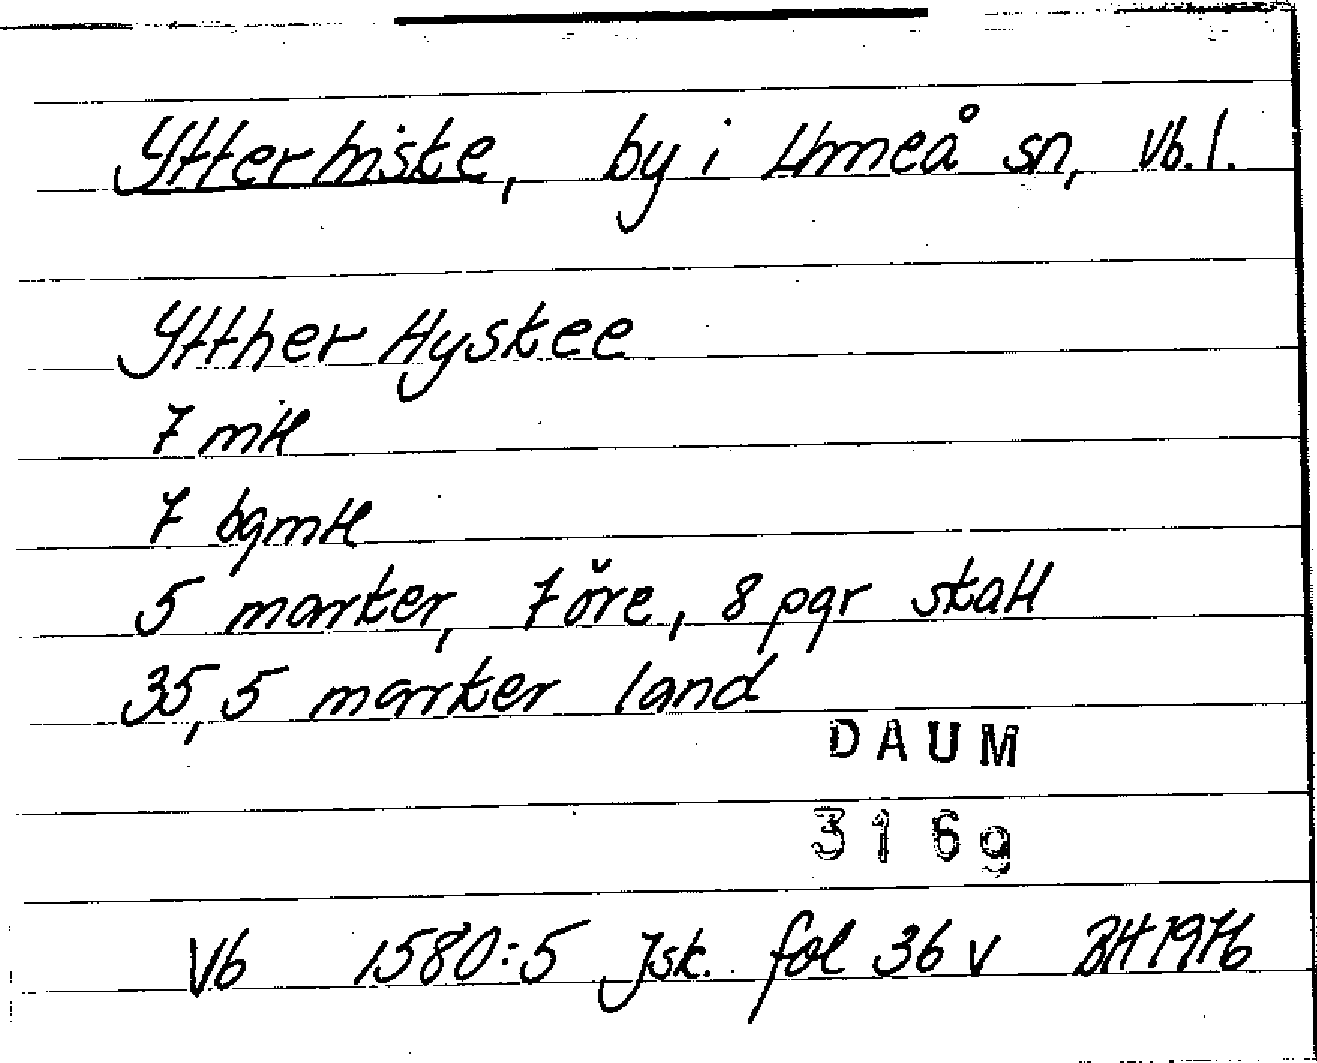 Ytterhiske, by i Umeå sn, Vb.l.
Ytther Hyskee
7 mtl
7 bgmtl
5 marker, 7 öre, 8 pgr skatt
35,5 marker land
DAUM
3169
Vb 1580:5 Jsk. fol 36 v BH 1976